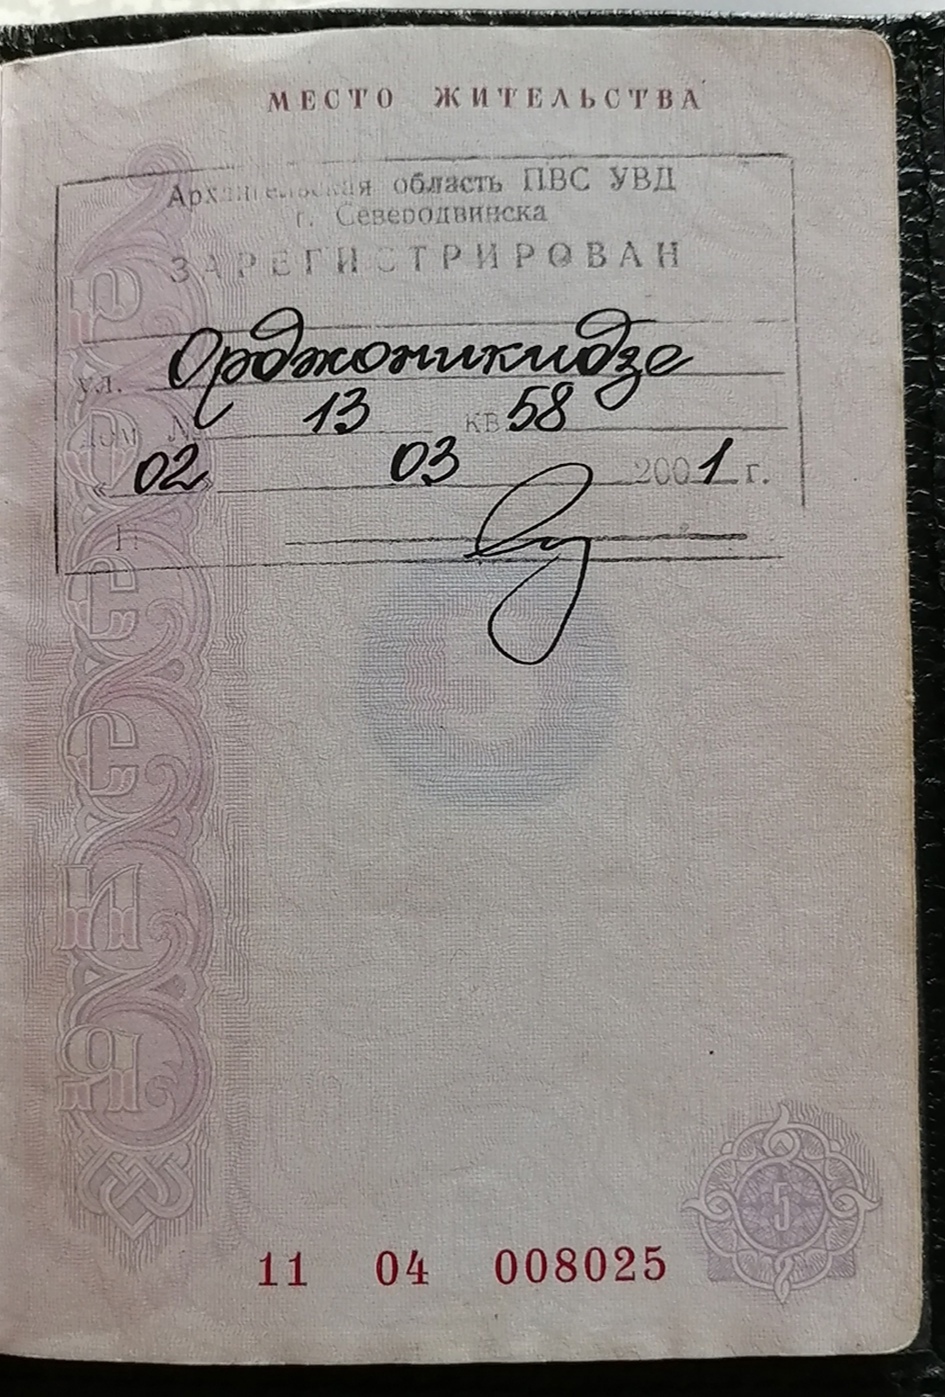 МЕСТО ЖИТЕЛЬСТВА
Архангельская область ПВС УВД
г. Северодвинска
ЗАРЕГИСТРИРОВАН
ул. Орджоникидзе
дом № 13 кв 58
« 02 03 2001 г.
П
РОССИЯ
5
11 04 008025